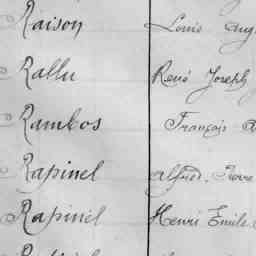 Raison Louis Aug
Rallu René Joseph
Rambos François A
Rapinel Alfred Pierre
Rapinel Henri Emile